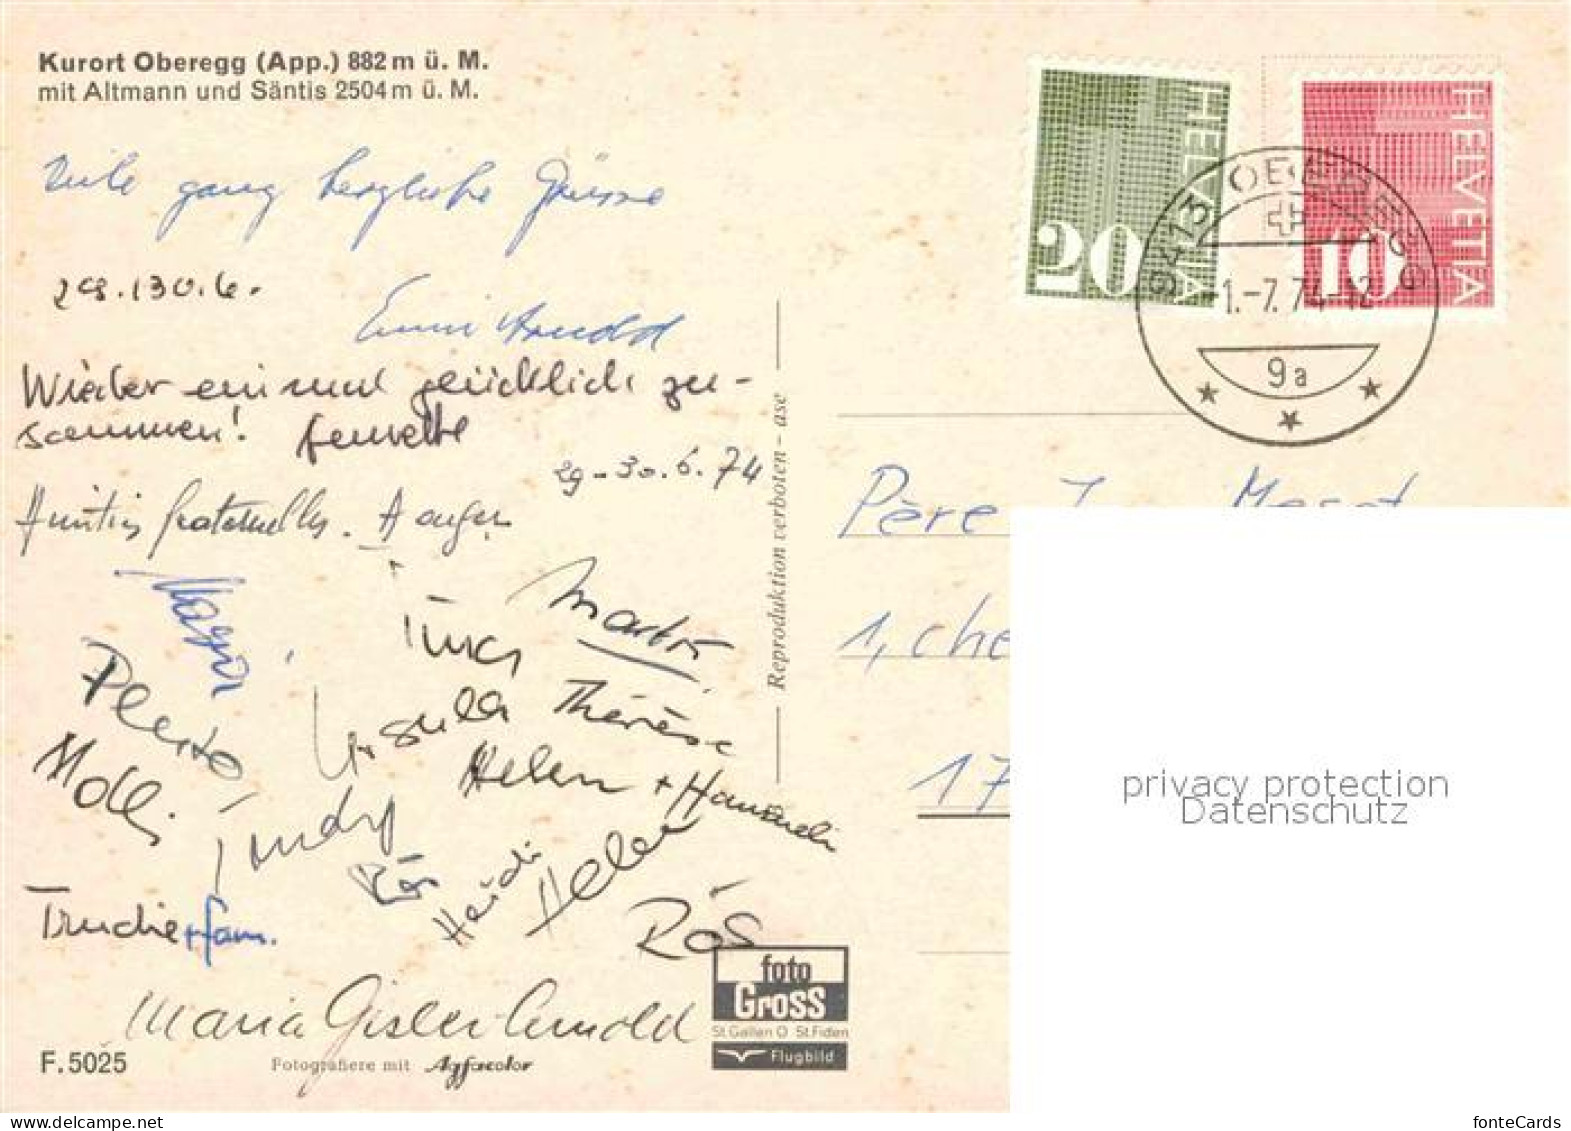 Kurort Oberegg (App.) 882 m ü. M.
mit Altmann und Säntis 2504 m ü. M.
Viele ganz herzliche Grüsse
29.130.6.
Wieder einmal glücklich zu-
sammen!
29-30.6.74
fraternelles.
Martin
Ursula Thérèse
Helen + Hansruedi
Molli
Trudy
Rös
Heidi
Helen
Trudie + Fam.
Rös
Maria Gisler-Arnold
F.5025
Fotografiere mit Agfacolor
foto
Gross
St.Gallen O St.Fiden
Flugbild
Reproduktion verboten - ase
HELVETIA
20
HELVETIA
10
9413 OBEREGG
1.-7.74-12
9a
Père
1, che
17
privacy protection
Datenschutz
www.delcampe.net
fonteCards